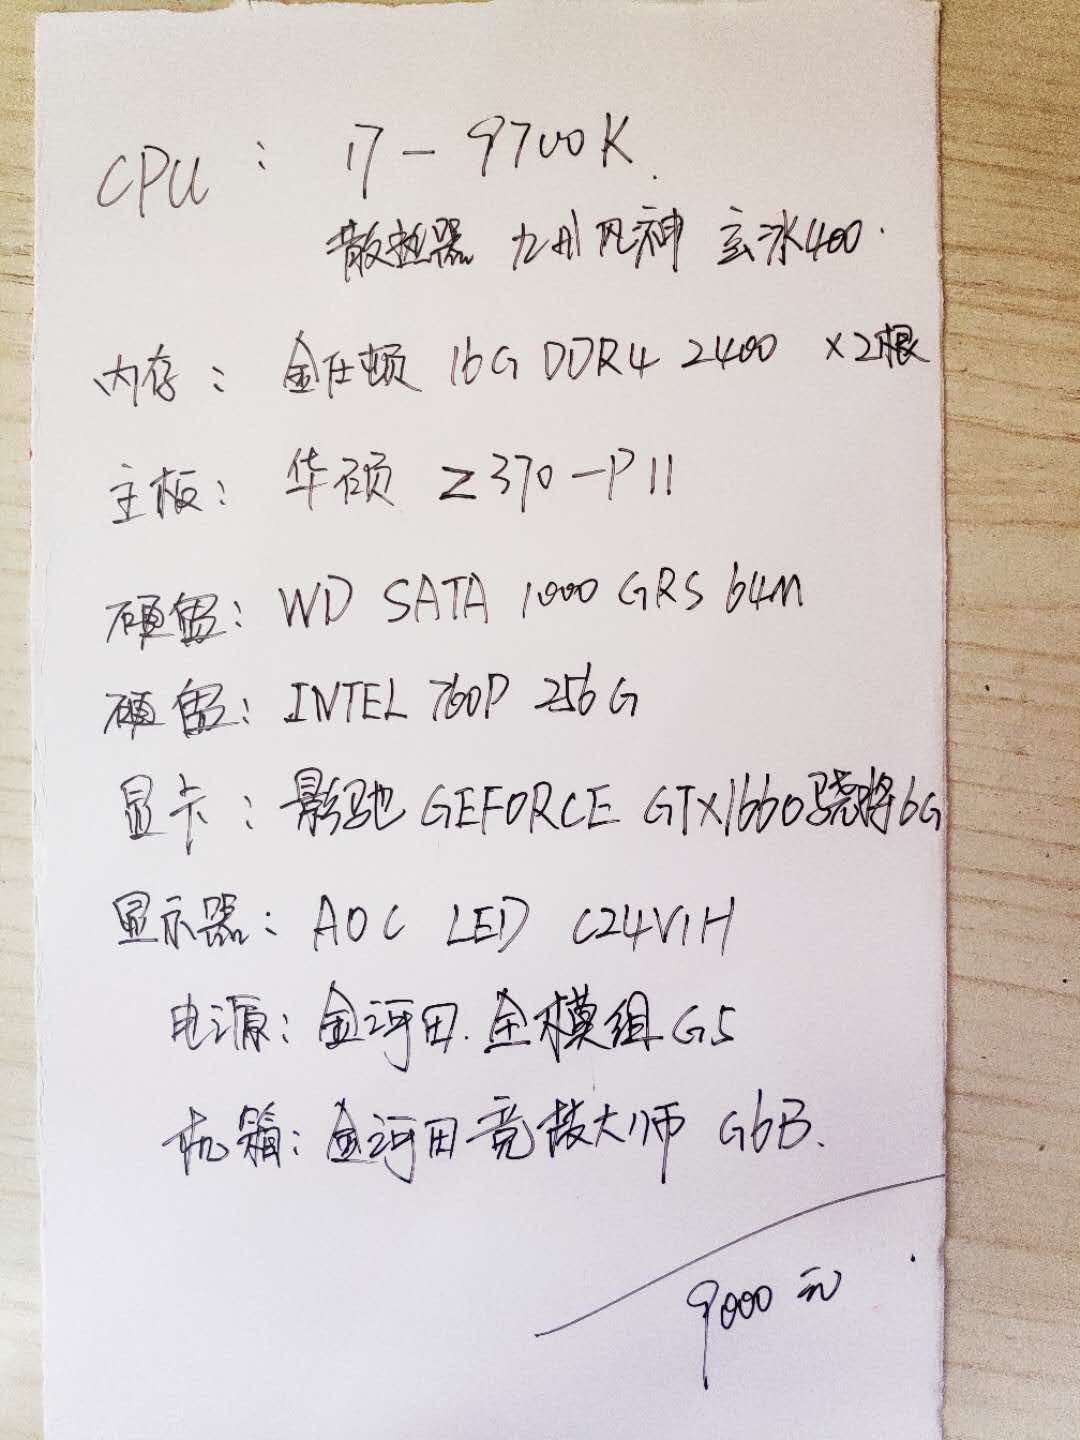 CPU: i7-9700K
散热器 九州风神 玄冰400
内存: 金仕顿 16G DDR4 2400 ×2根
主板: 华硕 Z370-P II
硬盘: WD SATA 1000GRS 64M
硬盘: INTEL 760P 256G
显卡: 影驰 GEFORCE GTX1660骁将6G
显示器: AOC LED C24V1H
电源: 金河田.全模组G5
机箱: 金河田竞技大师 G6B.
9000元